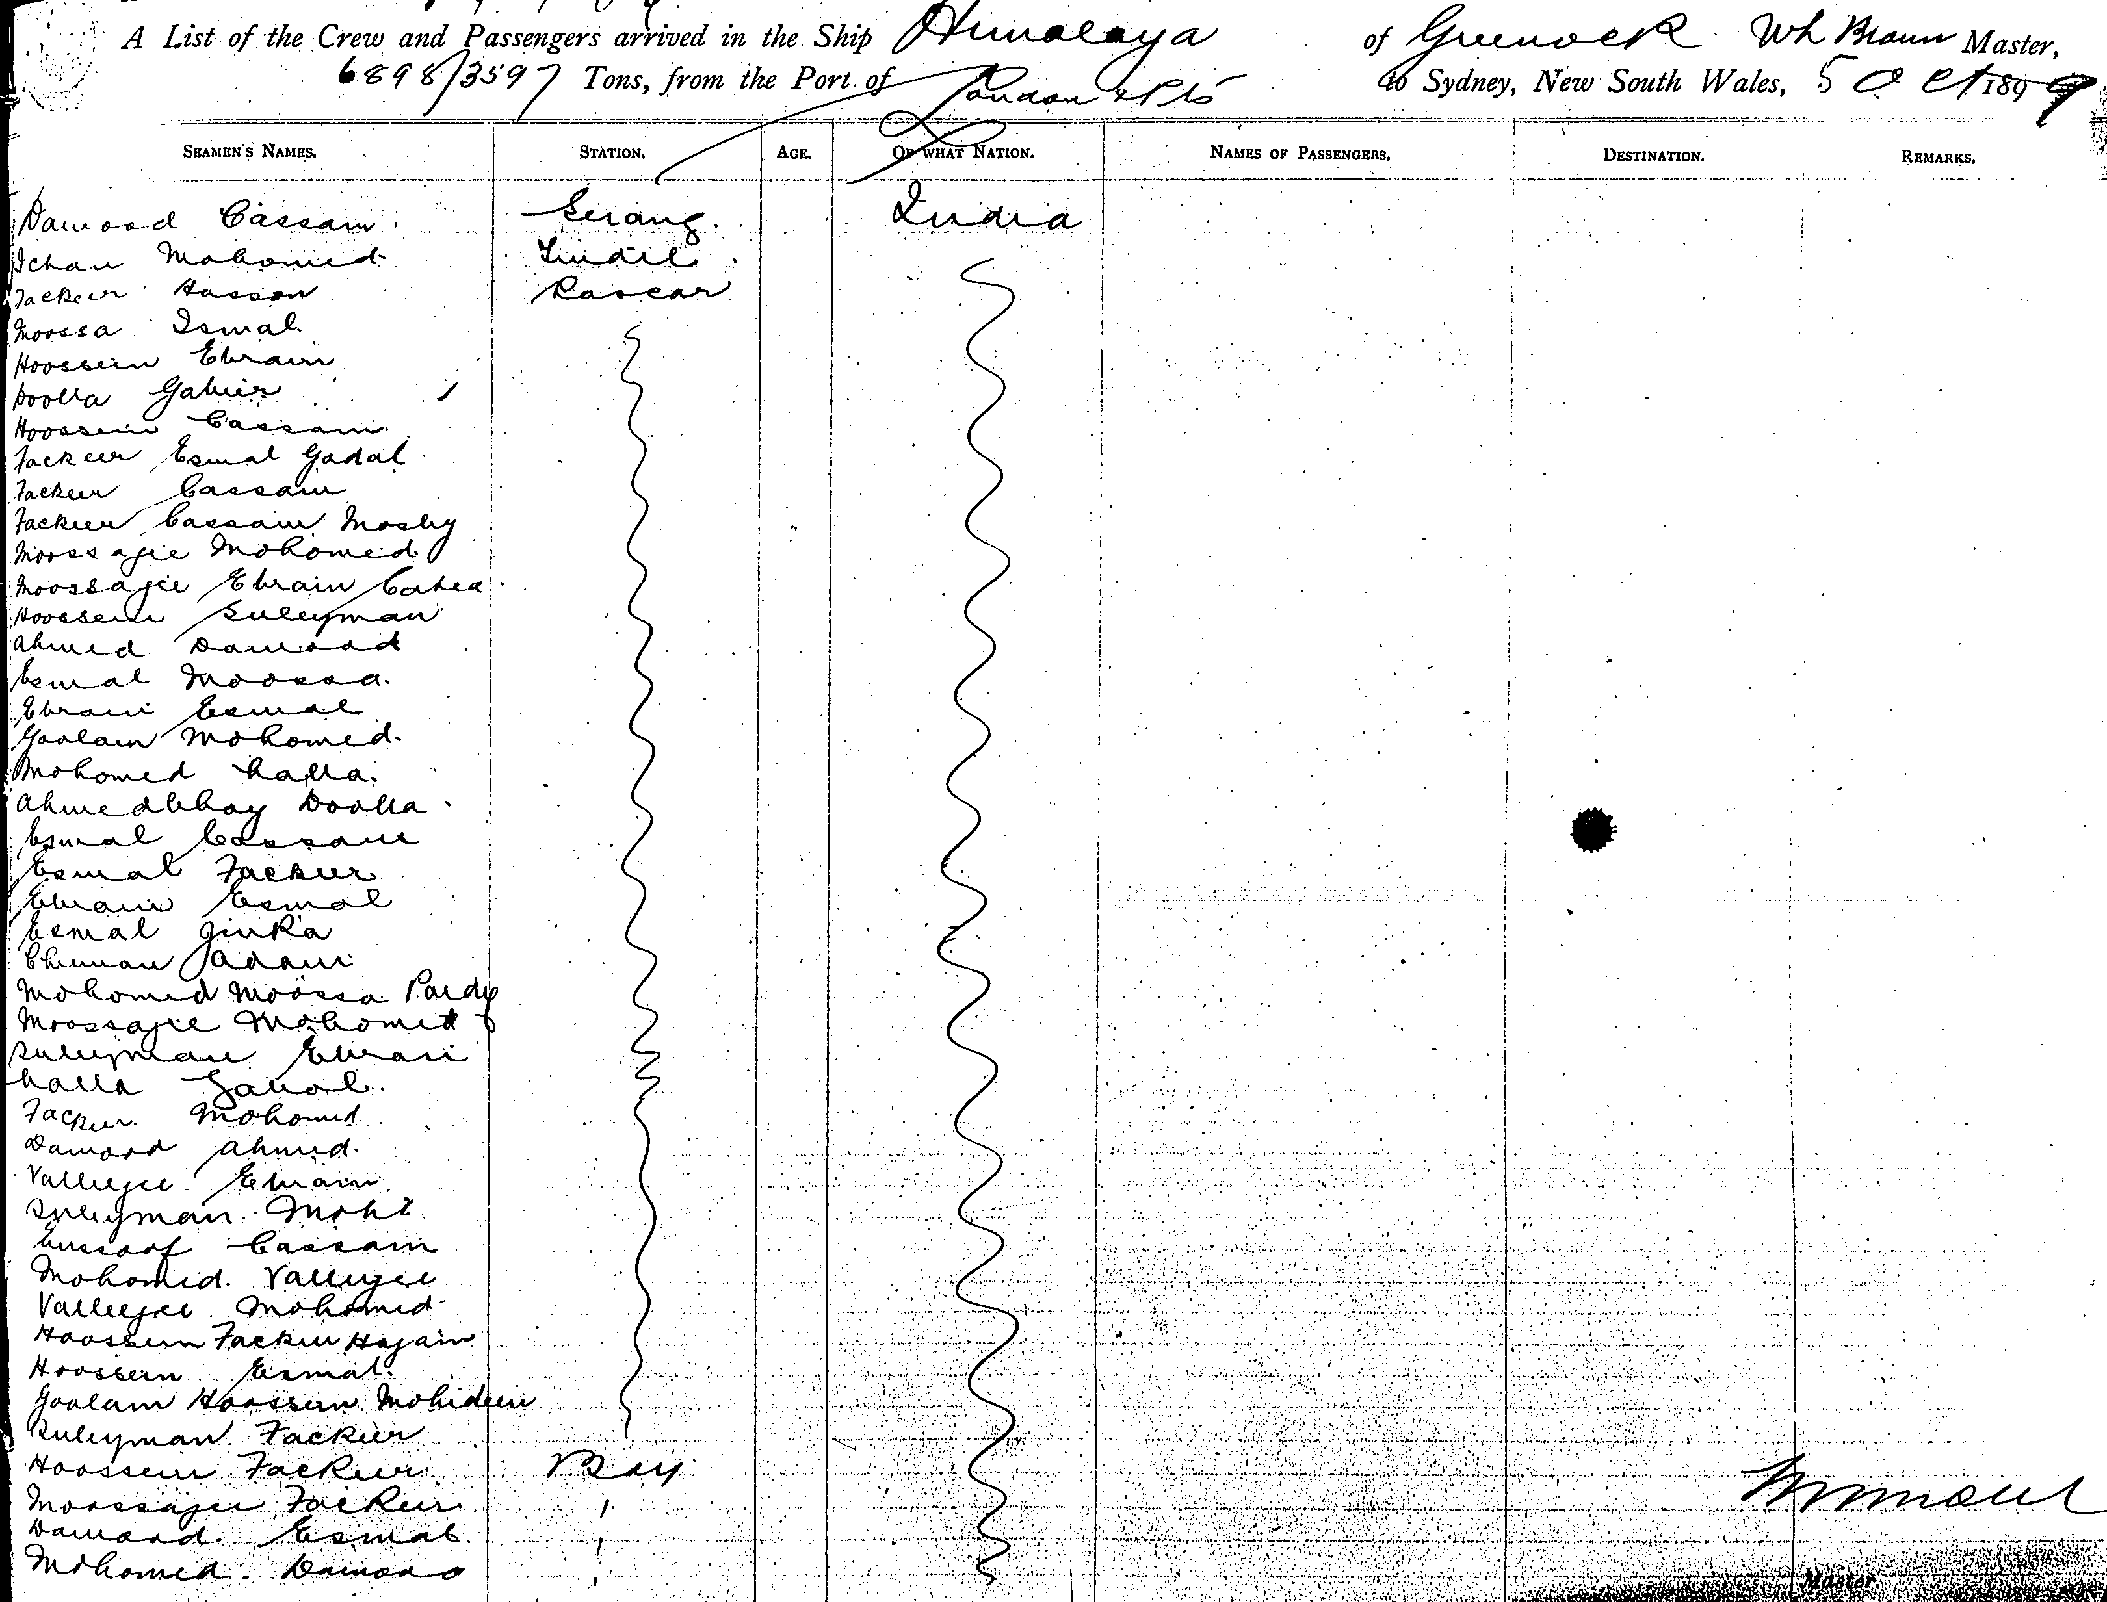 A List of the Crew and Passengers arrived in the Ship Himalaya of Greenock Wh Braun Master,
6898/3597 Tons, from the Port of London & Pts to Sydney, New South Wales, 5 Oct 1899
SEAMEN'S NAMES. STATION. AGE. OF WHAT NATION. NAMES OF PASSENGERS. DESTINATION. REMARKS.
Dawood Cassam Serang. India
Mohomed Tindil
Fackeer Hasson Lascar
Moossa Ismal
Hoossein Ebraim
Doolla
Hoossein Cassam
Fackeer Esmal Gadal
Fackeer Cassam
Fackeer Cassam Mosby
Moossajee Mohomed
Moossajee Ebraim
Hoossein Suleyman
Ahmed Dawood
Esmal Moossa
Ebraim Esmal
Goolam Mohomed
Mohomed Calla
Ahmedbhoy Doolla
Esmal Cassam
Esmal Fackeer
Ebraim Esmal
Esmal Jinka
Adam
Mohomed Moossa
Moossajee Mohomed
Suleyman Ebraim
Calla
Fackeer Mohomed
Dawood Ahmed
Valleejee Ebraim
Suleyman Mohd
Eussoof Cassam
Mohomed Valleejee
Valleejee Mohomed
Hoossein Fackeer Hajam
Hoossein Esmal
Goolam Hoossein Mohideen
Suleyman Fackeer
Hoossein Fackeer Boy
Moossajee Fackeer
Dawood Esmal
Mohomed Dawood
Master